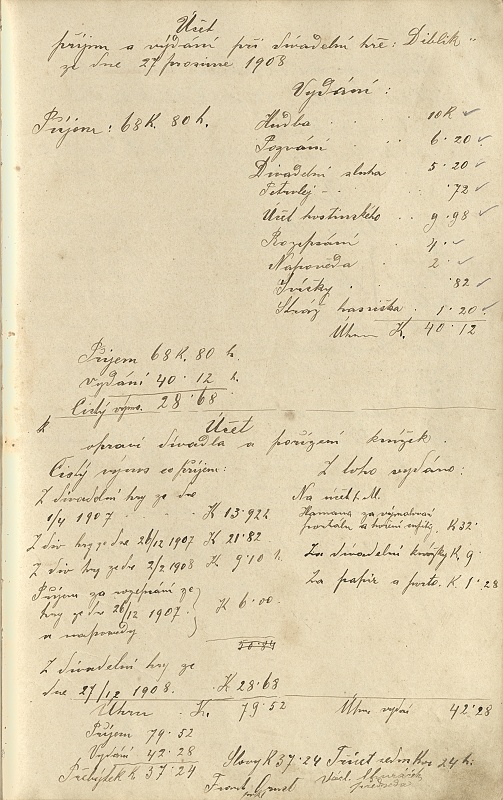 Účet
příjem a vydání při divadelní hře: Diblík"
ze dne 27 prosince 1908
Vydání:
Příjem: 68 K. 80 h.
Hudba . . 10 K
Pozvání . 6·20
Divadelní sluha 5·20
Petrolej - - . 72
Účet hostinského . . 9·98
Rozepsání . 4·
Nápověda . 2·
Svíčky . . 82
Stráž hasičská . 1·20
Úhrn K. 40·12
Příjem 68 K. 80 h.
vydání 40·12 h.
Čistý výnos 28·68
Účet
k opravě divadla a pořízení knížek.
Čistý výnos co příjem:
Z toho vydáno:
Z divadelní hry ze dne
1/4 1907 K 13·922
Na účet
za vymalování
portálu K 32·
Z div hry ze dne 26/12 1907 K 21·82
Z div hry ze dne 2/2 1908 K 9·10 h.
Za divadelní knížky K. 9·
Za papír a porto. K 1·28
Příjem za rozepsání ze
hry ze dne 26/12 1907.
a nápovědy
K 6·00
50·84
Z divadelní hry ze
dne 27/12 1908. K 28·68
Úhrn K. 79·52
Úhrn vydání 42·28
Příjem 79·52
Vydání 42·28
Přebytek K 37·24
Slovy K 37·24 Třicet sedm Kor 24 h.
Frant.
předseda